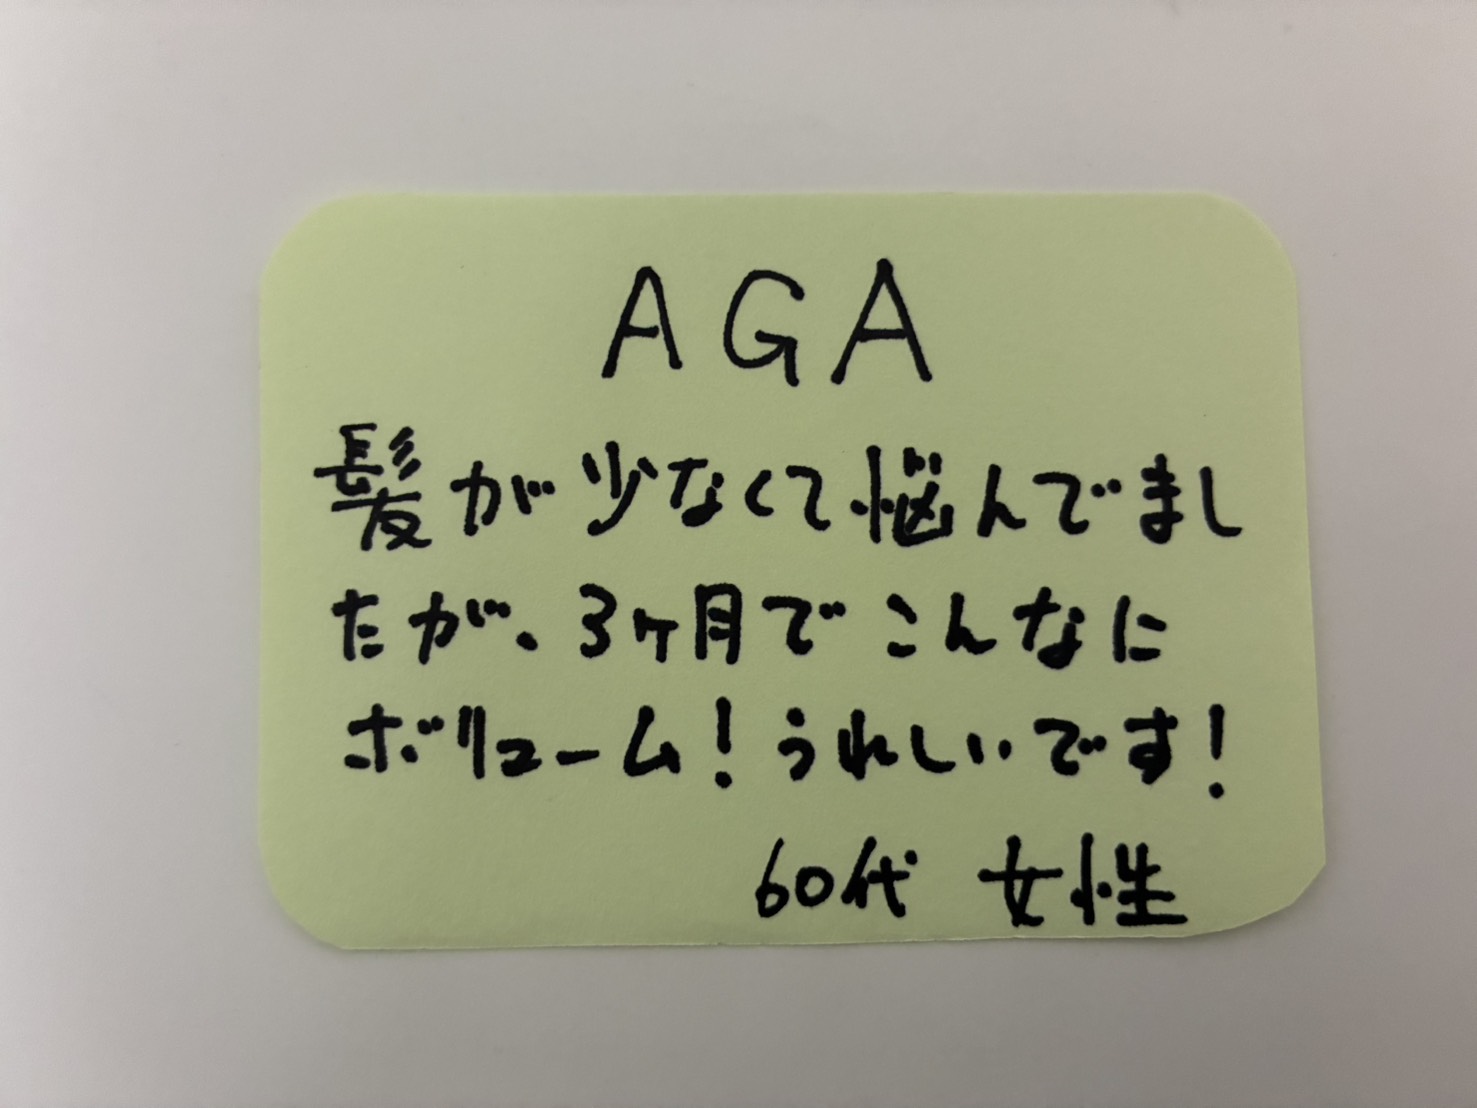 AGA
髪が少なくて悩んでまし
たが、3ヶ月でこんなに
ボリューム!うれしいです!
60代 女性